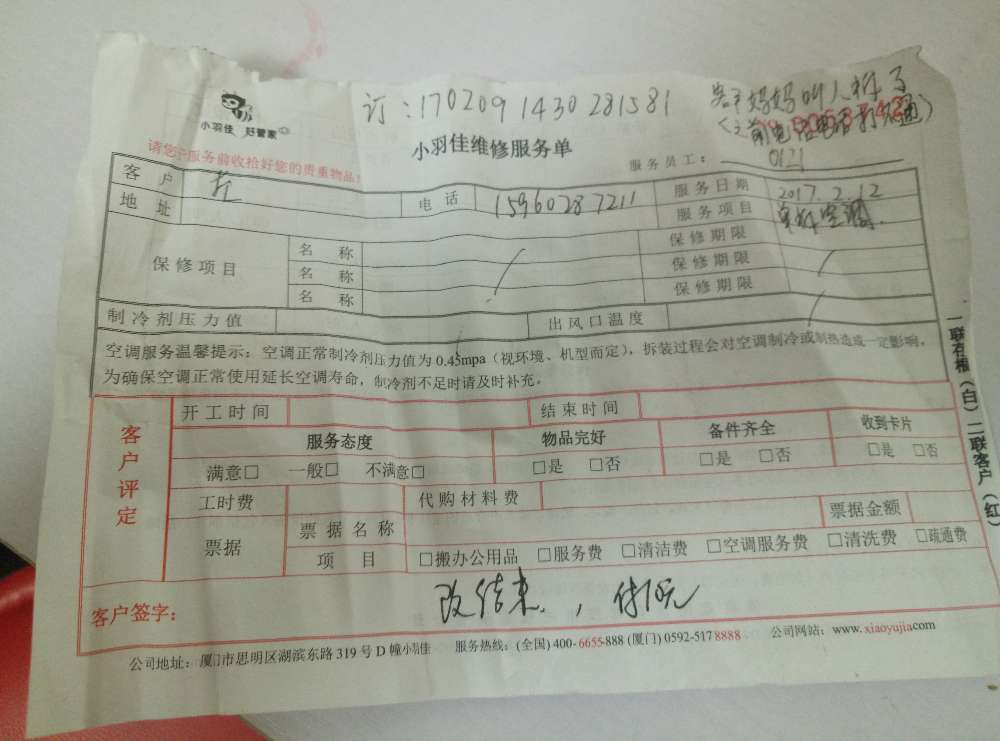 订：170209 1430 281581
客户妈妈叫人拆了
小羽佳 好管家
小羽佳维修服务单
请您于服务前收拾好您的贵重物品！
服务员工： 0121
客户 电话 15960287211 服务日期 2017.2.12
地址 服务项目
保修项目 名称 保修期限
名称 保修期限
名称 保修期限
制冷剂压力值 出风口温度
空调服务温馨提示：空调正常制冷剂压力值为0.45mpa（视环境、机型而定），拆装过程会对空调制冷或制热造成一定影响，
为确保空调正常使用延长空调寿命，制冷剂不足时请及时补充。
客户评定
开工时间 结束时间
服务态度 物品完好 备件齐全 收到卡片
满意□ 一般□ 不满意□ □是 □否 □是 □否 □是 □否
工时费 代购材料费
票据 票据名称 票据金额
项目 □搬办公用品 □服务费 □清洁费 □空调服务费 □清洗费 □疏通费
客户签字： 改结束，
公司地址：厦门市思明区湖滨东路319号D幢小羽佳 服务热线：(全国) 400-6655-888 (厦门) 0592-5178888 公司网站：www.xiaoyujia.com
一联存根（白）二联客户（红）